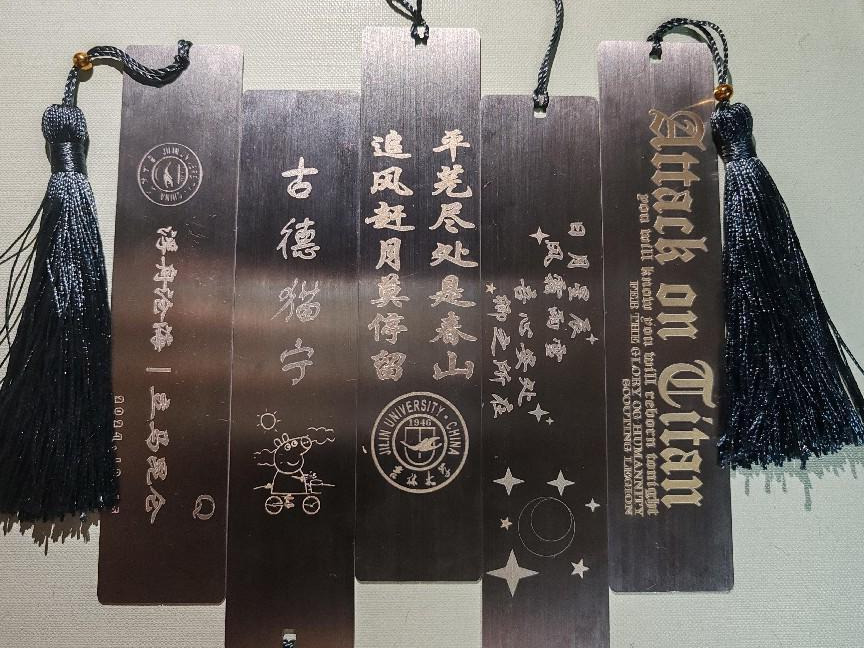 JILIN UNIVERSITY CHINA
沧海|立马昆仑
古德猫宁
平芜尽处是春山
追风赶月莫停留
JILIN UNIVERSITY · CHINA
1946
吉林大学
日月星辰
风霜雨雪
吾心安处
卿之所在
Attack on Titan
you will know you will reborn tonight
FEE THE GLORY OG HUMANNITY
SCOUTING LEGHION